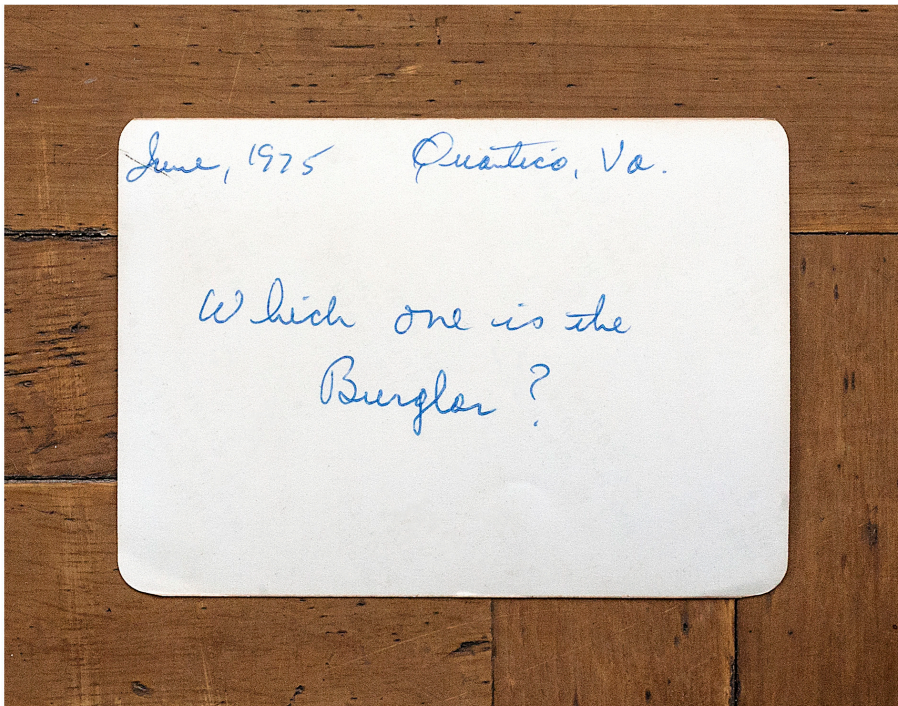 June, 1975 Quantico, Va.
Which one is the
Burglar ?